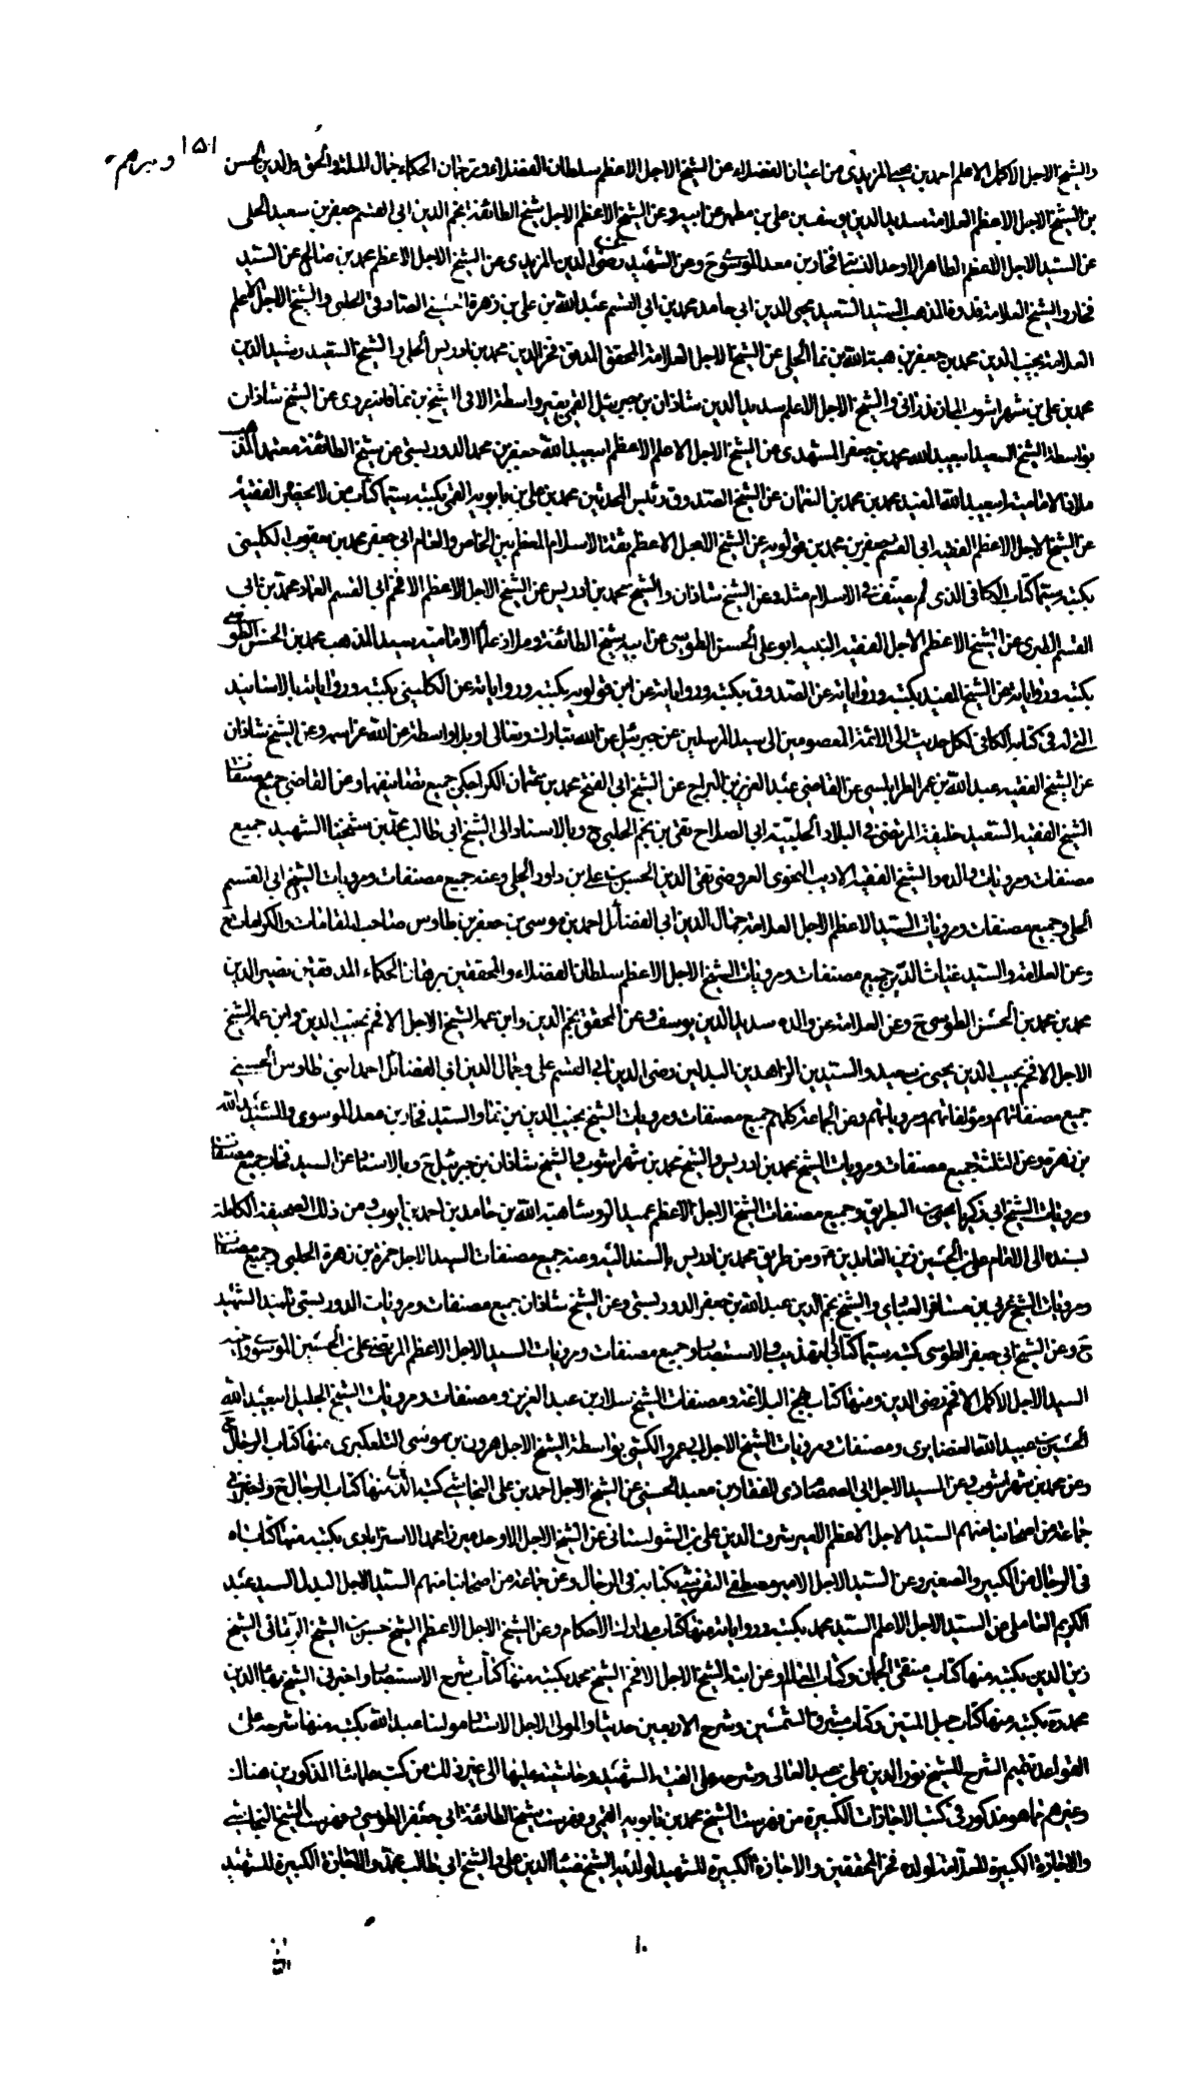 ۱۵۱ وغيرهم
والشيخ الاجل الاكمل الاعلم احمد بن يحيى المزيدى من اعيان الفضلاء عن الشيخ الاجل الاعظم سلطان الفضلاء وترجمان الحكماء جمال الملة والحق والدين الحسن
بن الشيخ الاجل الاعظم العلامة سديد الدين يوسف بن على بن مطهر عن ابيه وعن الشيخ الاعظم الاجل شيخ الطائفة نجم الدين ابى القسم جعفر بن سعيد الحلى
عن السيد الاجل الاعظم الطاهر الاوحد النسابة فخار بن معد الموسوى ح وعن الشهيد عن رضى الدين المزيدى عن الشيخ الاجل الاعظم محمد بن صالح عن السيد
فخار والشيخ العلامة قدوة المذهب السيد السعيد محيى الدين ابى حامد محمد بن ابى القسم عبد الله بن على بن زهرة الحسينى الصادقى الحلبى والشيخ الاجل الاعلم
العلامة نجيب الدين محمد بن جعفر بن هبة الله بن نما الحلى عن الشيخ الاجل العلامة المحقق المدقق فخر الدين محمد بن ادريس الحلى والشيخ السعيد رشيد الدين
محمد بن على بن شهراشوب المازندرانى والشيخ الاجل الاعلم سديد الدين شاذان بن جبرئيل القمى بغير واسطة الا فى الشيخ بن نما فانه يروى عن الشيخ شاذان
بواسطة الشيخ السعيد ابى عبد الله محمد بن جعفر المشهدى عن الشيخ الاجل الاعلم الاعظم ابى عبد الله جعفر بن محمد الدوريستى عن شيخ الطائفة معتمد المذهب
ملاذ الامامية ابى عبد الله المفيد محمد بن محمد بن النعمان عن الشيخ الصدوق رئيس المحدثين محمد بن على بن بابويه القمى بكتبه سيما كتاب من لا يحضره الفقيه
عن الشيخ الاجل الاعظم الفقيه ابى القسم جعفر بن محمد بن قولويه عن الشيخ الاجل الاعظم ثقة الاسلام المعظم بين الخاص والعام ابى جعفر محمد بن يعقوب الكلينى
بكتبه سيما كتاب الكافى الذى لم يصنف فى الاسلام مثله وعن الشيخ شاذان والشيخ محمد بن ادريس عن الشيخ الاجل الاعظم الافخم ابى القسم العماد محمد بن ابى
القسم الطبرى عن الشيخ الاعظم الاجل الفقيه النبيه ابو على الحسن الطوسى عن ابيه شيخ الطائفة وملاذ علماء الامامية سيد المذهب محمد بن الحسن الطوسى
بكتبه ورواياته عن الشيخ المفيد بكتبه ورواياته عن الصدوق بكتبه ورواياته عن ابن قولويه بكتبه ورواياته عن الكلينى بكتبه ورواياته بالاسانيد
التى له فى كتابه الكافى لكل حديث الى الائمة المعصومين الى سيد المرسلين عن جبرئيل عن الله تبارك وتعالى او بلا واسطة عن الله عز اسمه وعن الشيخ شاذان
عن الشيخ الفقيه عبد الله بن عمر الطرابلسى عن القاضى عبد العزيز بن البراج عن الشيخ ابى الفتح محمد بن عثمان الكراجكى جميع تصانيفهما وعن القاضى جميع مصنفات
الشيخ الفقيه السعيد خليفة المرتضى فى البلاد الحلبية ابى الصلاح تقى بن نجم الحلبى ح وبالاسناد الى الشيخ ابى طالب محمد بن شيخنا الشهيد جميع
مصنفات ومرويات والده والشيخ الفقيه الاديب النحوى العروضى تقى الدين الحسن بن على بن داود الحلى وعنه جميع مصنفات ومرويات الشيخ ابى القسم
الحلى وجميع مصنفات ومرويات السيد الاعظم الاجل العلامة جمال الدين ابى الفضائل احمد بن موسى بن جعفر بن طاوس صاحب المقامات والكرامات ح
وعن العلامة والسيد غياث الدين جميع مصنفات ومرويات الشيخ الاجل الاعظم سلطان الفضلاء والمحققين برهان الحكماء المدققين نصير الدين
محمد بن محمد بن الحسن الطوسى ح وعن العلامة عن والده سديد الدين يوسف وعن المحقق نجم الدين وابن عمه الشيخ الاجل الافخم نجيب الدين وابن عم الشيخ
الاجل الافخم نجيب الدين يحيى بن سعيد والسيدين الزاهدين البدلين رضى الدين ابى القسم على وجمال الدين ابى الفضائل احمد ابنى طاوس الحسينى
جميع مصنفاتهم ومؤلفاتهم ومروياتهم وعن الجماعة كلهم جميع مصنفات ومرويات الشيخ نجيب الدين بن نما والسيد فخار بن معد الموسوى والسيد عبد الله
بن زهرة وعن الثلثة جميع مصنفات ومرويات الشيخ محمد بن ادريس والشيخ محمد بن شهراشوب والشيخ شاذان بن جبرئيل ح وبالاسناد عن السيد فخار جميع مصنفات
ومرويات الشيخ ابى زكريا يحيى بن البطريق وجميع مصنفات الشيخ الاجل الاعظم عميد الرؤساء هبة الله بن حامد بن احمد بن ايوب ومن ذلك الصحيفة الكاملة
بسنده الى الامام على بن الحسين زين العابدين ع ومن طريق محمد بن ادريس بالسند اليه وعنه جميع مصنفات السيد الاجل حمزة بن زهرة الحلبى وجميع مصنفات
ومرويات الشيخ عربى بن مسافر العبادى والشيخ نجم الدين عبد الله بن جعفر الدوريستى وعن الشيخ شاذان جميع مصنفات ومرويات الدوريستى تلميذ الشهيد
ح وعن الشيخ ابى جعفر الطوسى كتبه سيما كتابى التهذيب والاستبصار وجميع مصنفات ومرويات السيد الاجل الاعظم المرتضى على بن الحسين الموسوى واخيه
السيد الاجل الاكمل الافخم رضى الدين ومنها كتاب نهج البلاغة ومصنفات الشيخ سلار بن عبد العزيز ومصنفات ومرويات الشيخ الجليل ابى عبد الله
الحسين بن عبيد الله الغضايرى ومصنفات ومرويات الشيخ الاجل ابى عمرو الكشى بواسطة الشيخ الاجل هرون بن موسى التلعكبرى منها كتاب الرجال ح
وعن محمد بن شهراشوب عن السيد الاجل ابى الصمصام ذى الفقار بن معبد الحسينى عن الشيخ الاجل احمد بن على النجاشى كتبه التى منها كتاب الرجال ح واخبرنى
جماعة من اصحابنا منهم السيد الاجل الاعظم الامير شرف الدين على بن الشولستانى عن الشيخ الاجل الاوحد ميرزا محمد الاسترابادى بكتبه منها كتاباه
فى الرجال من الكبير والصغير وعن السيد الاجل الامير مصطفى التفرشى بكتابه فى الرجال وعن جماعة من اصحابنا منهم السيد الاجل البدل السيد عبد
الكريم العاملى عن السيد الاجل الاعلم السيد محمد بكتبه ورواياته منها كتاب مدارك الاحكام وعن الشيخ الاجل الاعظم الشيخ حسن بن الشيخ الربانى الشيخ
زين الدين بكتبه منها كتاب منتقى الجمان وكتاب المعالم وعن ابنه الشيخ الاجل الافخم الشيخ محمد بكتبه منها كتاب شرح الاستبصار واخبرنى الشيخ بهاء الدين
محمد ره بكتبه ومنها كتاب حبل المتين وكتاب مشرق الشمسين وشرح الاربعين حديثا والمولى الاجل الاستاد مولينا عبد الله بكتبه منها شرحه على
القواعد تتميم الشرح للشيخ نور الدين على بن عبد العالى وشرحه على الفية الشهيد وحاشيته عليها الى غير ذلك من كتب علمائنا المذكورين هناك
وغيرهم مما هو مذكور فى كتب الاجازات الكبيرة من فهرست الشيخ محمد بن بابويه القمى وفهرست شيخ الطائفة ابى جعفر الطوسى وفهرست الشيخ النجاشى
والاجازة الكبيرة للعلامة لولده فخر المحققين والاجازة الكبيرة للشهيد لولديه الشيخ ضياء الدين على والشيخ ابى طالب محمد والاجازة الكبيرة للشهيد
۱۰